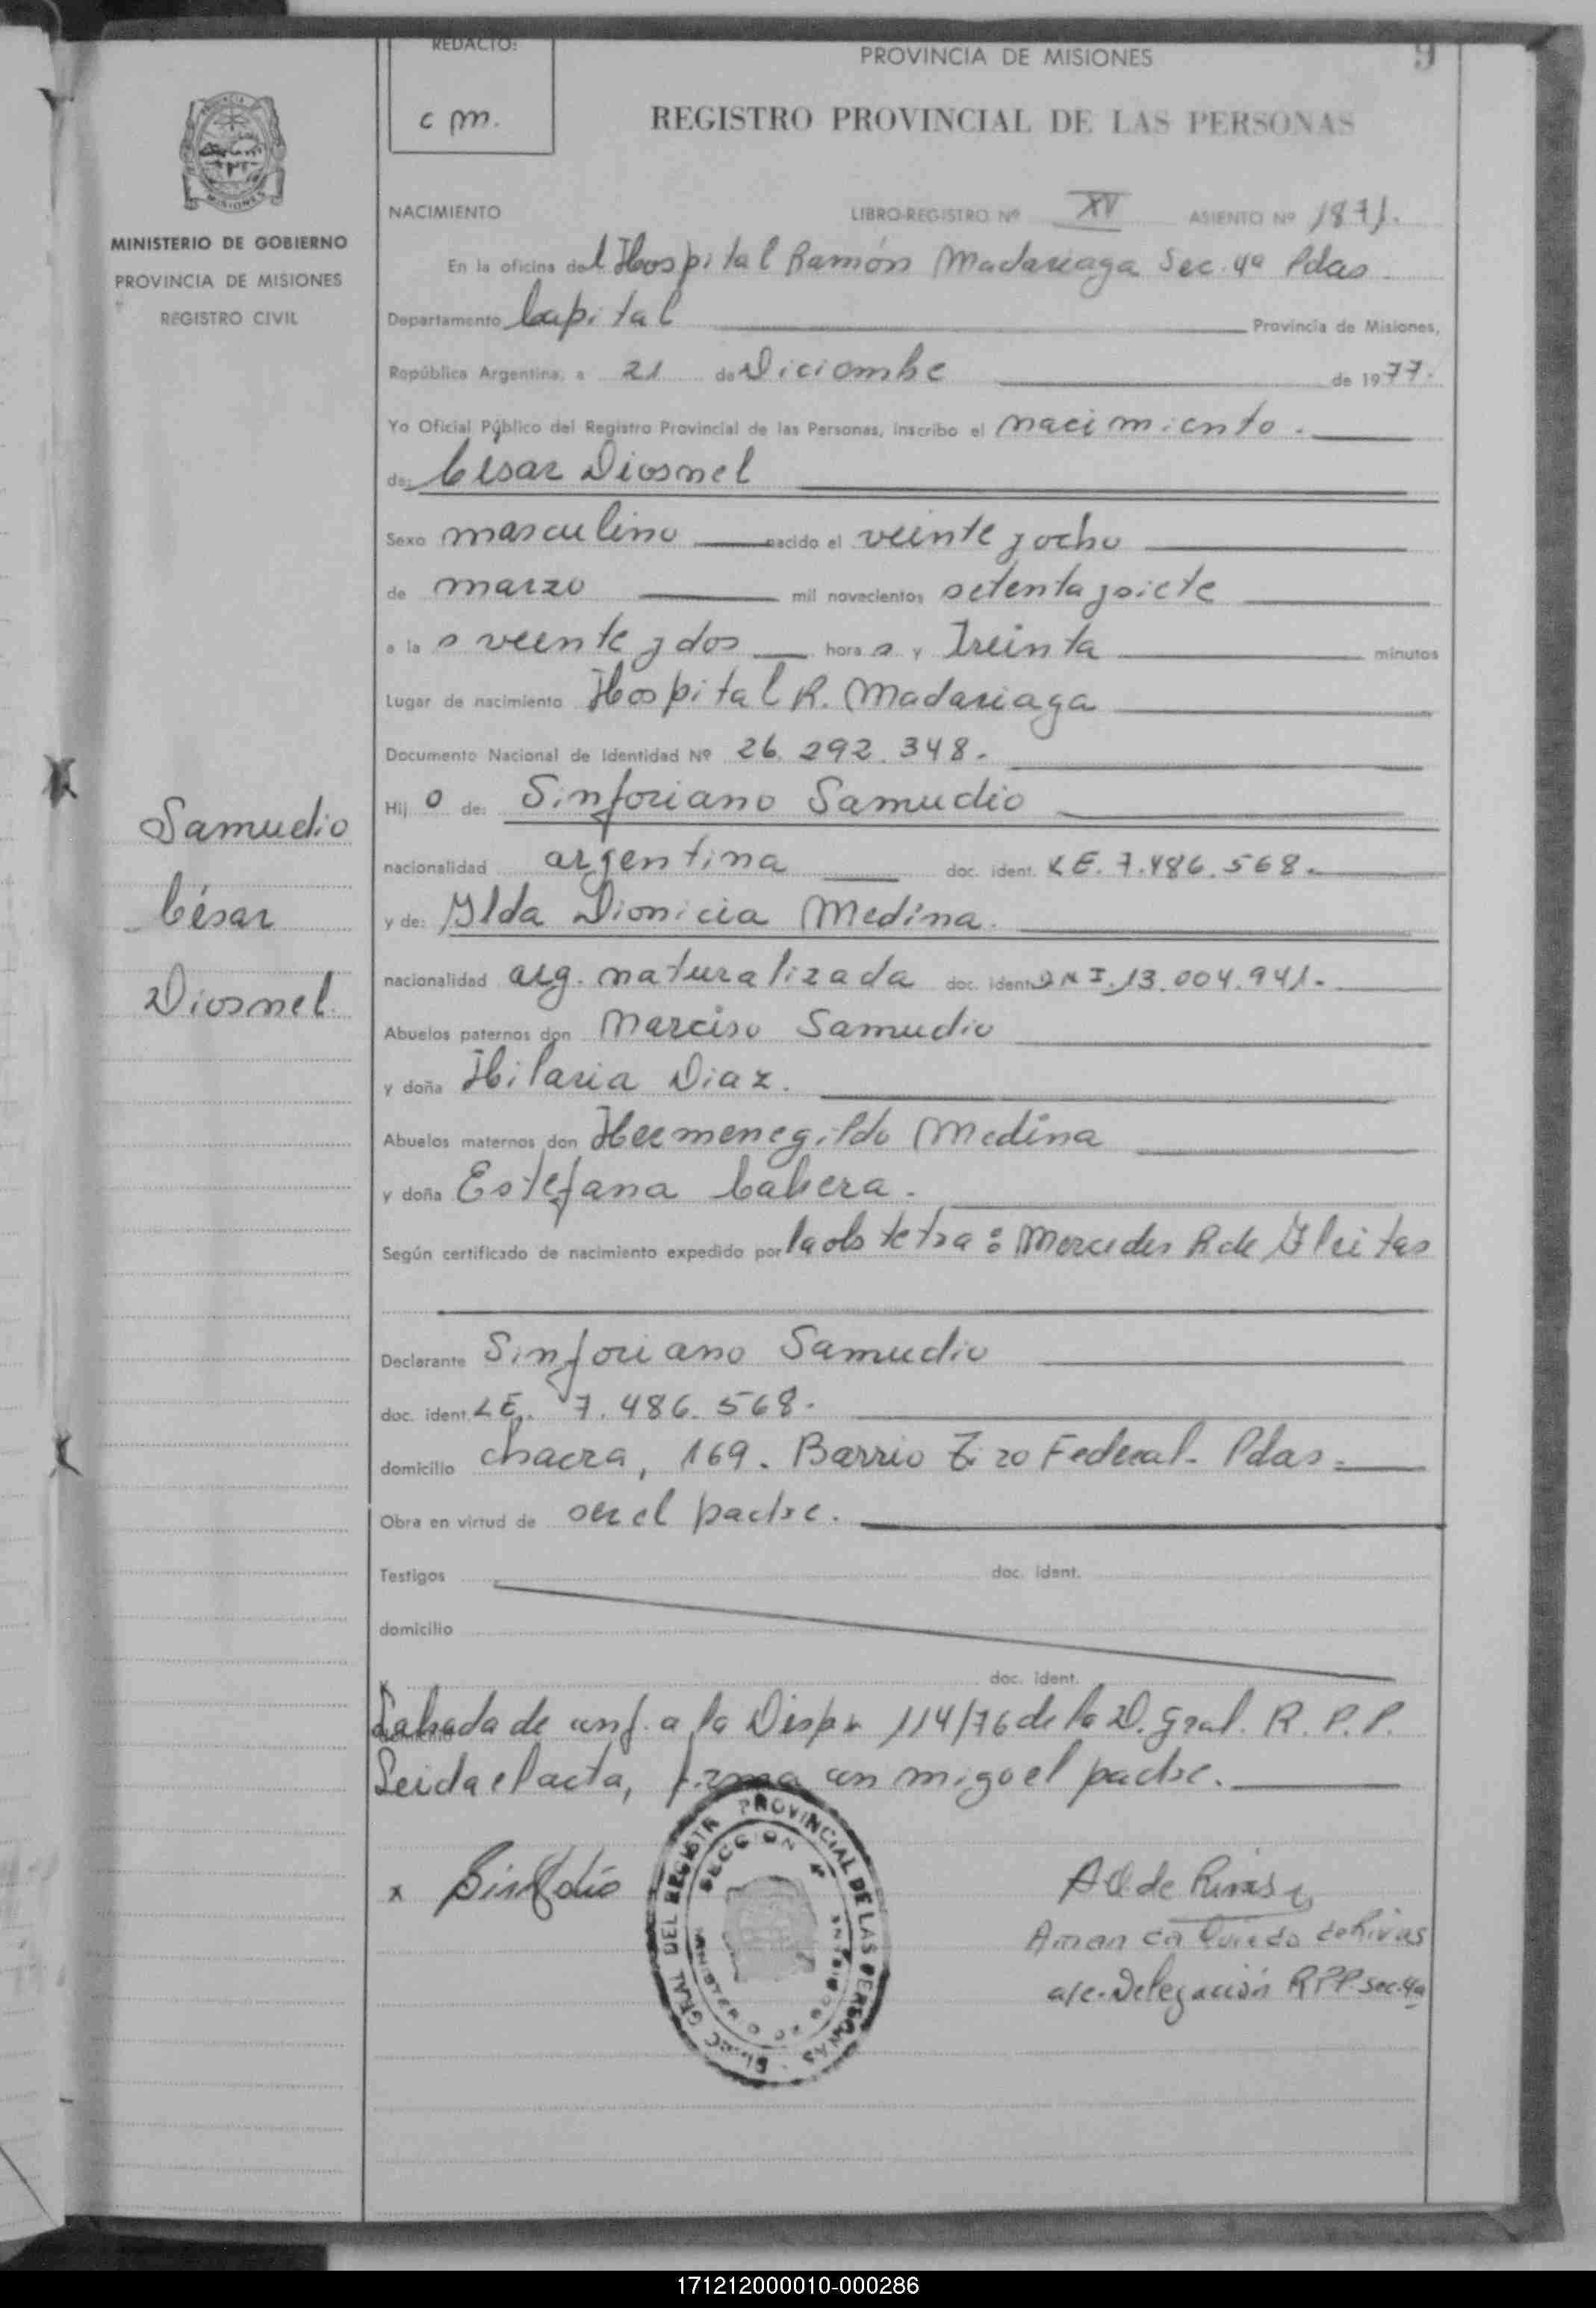 REDACTO:
c m.
PROVINCIA DE MISIONES
9
REGISTRO PROVINCIAL DE LAS PERSONAS
PROVINCIA DE
MISIONES
MINISTERIO DE GOBIERNO
PROVINCIA DE MISIONES
REGISTRO CIVIL
NACIMIENTO LIBRO-REGISTRO Nº XV ASIENTO Nº 1871.
En la oficina del Hospital Ramón Madariaga Sec. 4a Pdas
Departamento Capital Provincia de Misiones,
República Argentina, a 21 de Diciembre de 1977.
Yo Oficial Público del Registro Provincial de las Personas, inscribo el nacimiento.
de: César Diosnel
Sexo masculino nacido el veinte y ocho
de marzo mil novecientos setenta y siete
a la s veinte y dos hora s y Treinta minutos
Lugar de nacimiento Hospital R. Madariaga
Documento Nacional de Identidad Nº 26.292.348.
Hij o de: Sinforiano Samudio
nacionalidad argentina doc. ident. LE. 7.486.568.
y de: Ilda Dionicia Medina.
nacionalidad arg. naturalizada doc. ident. DNI. 13.004.941.
Abuelos paternos don Narciso Samudio
y doña Hilaria Diaz.
Abuelos maternos don Hermenegildo Medina
y doña Estefana Cabrera.
Según certificado de nacimiento expedido por la obstetra: Mercedes R de Gleitas
Declarante Sinforiano Samudio
doc. ident. LE. 7.486.568.
domicilio chacra, 169. Barrio Tiro Federal. Pdas.
Obra en virtud de ser el padre.
Testigos doc. ident.
domicilio
y doc. ident.
domicilio
Labrada de conf. a la Disp. 114/76 de la D. Gral. R. P. P.
Leida el acta, firma con migo el padre.
x
DIREC GRAL DEL REGISTR PROVINCIAL DE LAS PERSONAS
SECCION 4ª
A O de Rivas
Amanda Oviedo de Rivas
a/c. Delegación RPP. sec. 4a
Samudio
César
Diosnel.
171212000010-000286